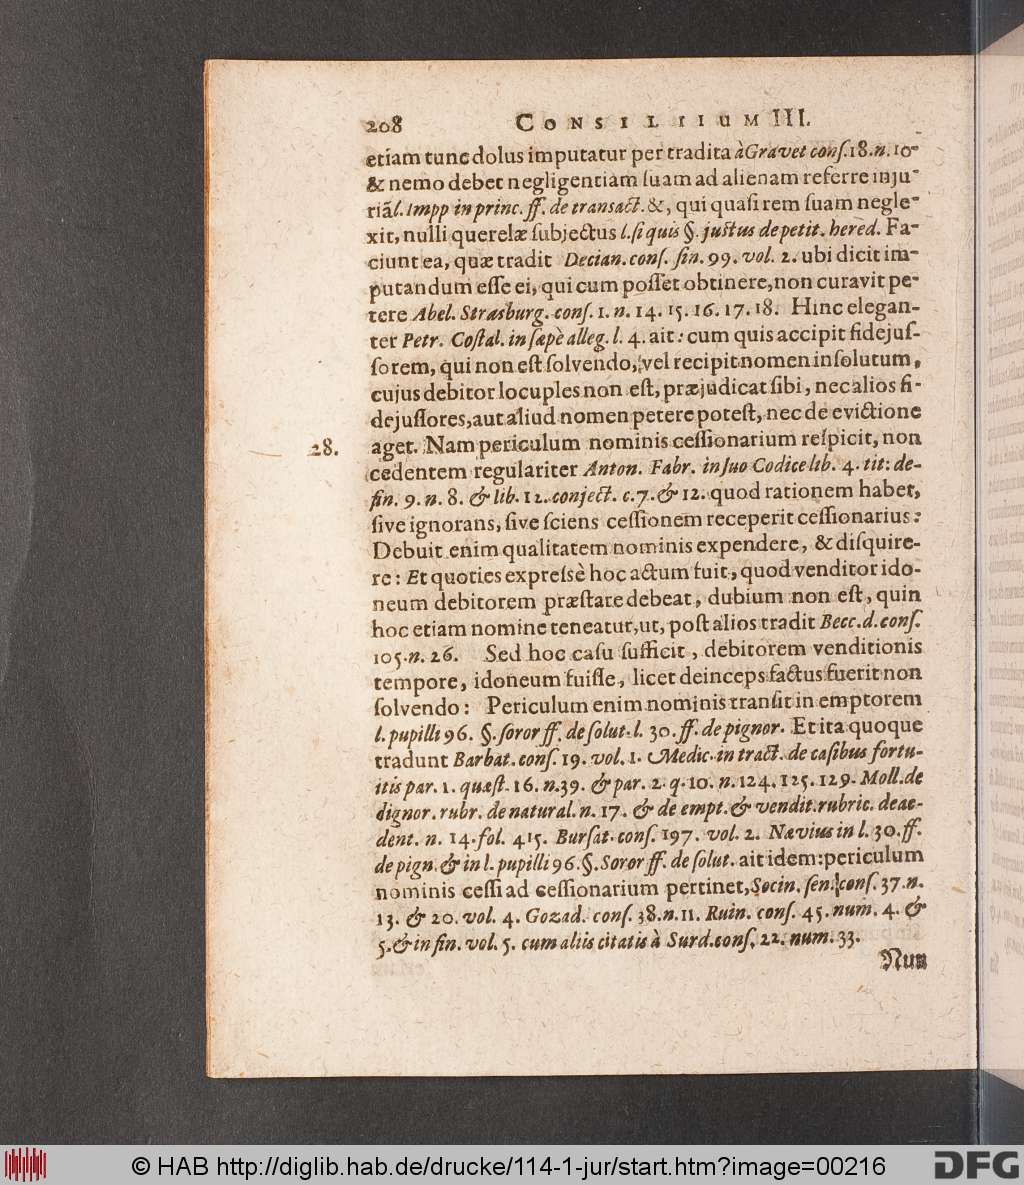 208 CONSILIIUM III.
etiam tunc dolus imputatur per tradita à Gravet conſ. 18. n. 10
& nemo debet negligentiam ſuam ad alienam referre inju-
riã l. Impp in princ. ff. de transact. &, qui quaſi rem ſuam negle-
xit, nulli querelæ ſubjectus l. ſi quis §. juſtus de petit. hered. Fa-
ciunt ea, quæ tradit Decian. conſ. fin. 99. vol. 2. ubi dicit im-
putandum eſſe ei, qui cum poſſet obtinere, non curavit pe-
tere Abel. Strasburg. conſ. 1. n. 14. 15. 16. 17. 18. Hinc elegan-
ter Petr. Coſtal. in ſæpè alleg. l. 4. ait: cum quis accipit fidejuſ-
ſorem, qui non eſt ſolvendo, vel recipit nomen in ſolutum,
cujus debitor locuples non eſt, præjudicat ſibi, nec alios fi-
dejuſſores, aut aliud nomen petere poteſt, nec de evictione
28. aget. Nam periculum nominis ceſſionarium reſpicit, non
cedentem regulariter Anton. Fabr. in ſuo Codice lib. 4. tit: de-
fin. 9. n. 8. & lib. 12. conject. c. 7. & 12. quod rationem habet,
ſive ignorans, ſive ſciens ceſſionem receperit ceſſionarius:
Debuit enim qualitatem nominis expendere, & diſquire-
re: Et quoties expreſsè hoc actum fuit, quod venditor ido-
neum debitorem præſtare debeat, dubium non eſt, quin
hoc etiam nomine teneatur, ut, poſt alios tradit Becc. d. conſ.
105. n. 26. Sed hoc caſu ſufficit, debitorem venditionis
tempore, idoneum fuiſſe, licet deinceps factus fuerit non
ſolvendo: Periculum enim nominis tranſit in emptorem
l. pupilli 96. §. ſoror ff. de ſolut. l. 30. ff. de pignor. Et ita quoque
tradunt Barbat. conſ. 19. vol. 1. Medic. in tract. de caſibus fortu-
itis par. 1. quæſt. 16. n. 39. & par. 2. q. 10. n. 124. 125. 129. Moll. de
dignor. rubr. de natural. n. 17. & de empt. & vendit. rubric. de ac-
dent. n. 14. fol. 415. Burſat. conſ. 197. vol. 2. Nævius in l. 30. ff.
de pign. & in l. pupilli 96. §. Soror ff. de ſolut. ait idem: periculum
nominis ceſſi ad ceſſionarium pertinet, Socin. ſen. conſ. 37. n.
13. & 20. vol. 4. Gozad. conſ. 38. n. 11. Ruin. conſ. 45. num. 4. &
5. & in fin. vol. 5. cum aliis citatis à Surd. conſ. 22. num. 33.
Nun
© HAB http://diglib.hab.de/drucke/114-1-jur/start.htm?image=00216
DFG